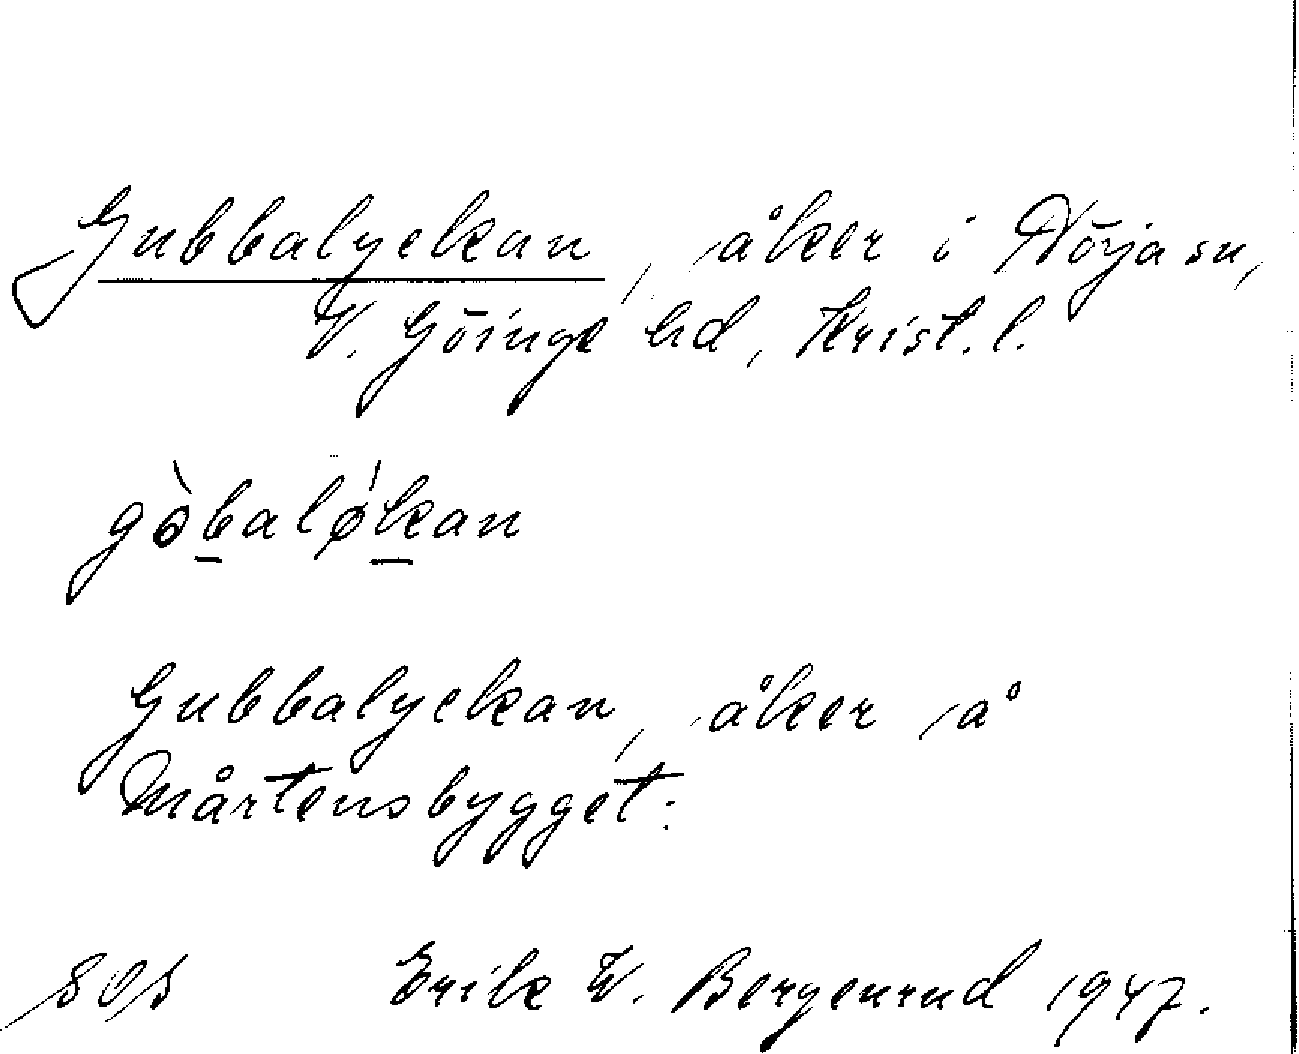 Gubbalyckan, åker i Nörja sn,
V. Göinge hd, Krist. l.
gòbaløkan
Gubbalyckan, åker å
Mårtensbygget.
Erik W. Bergenrud 1947.